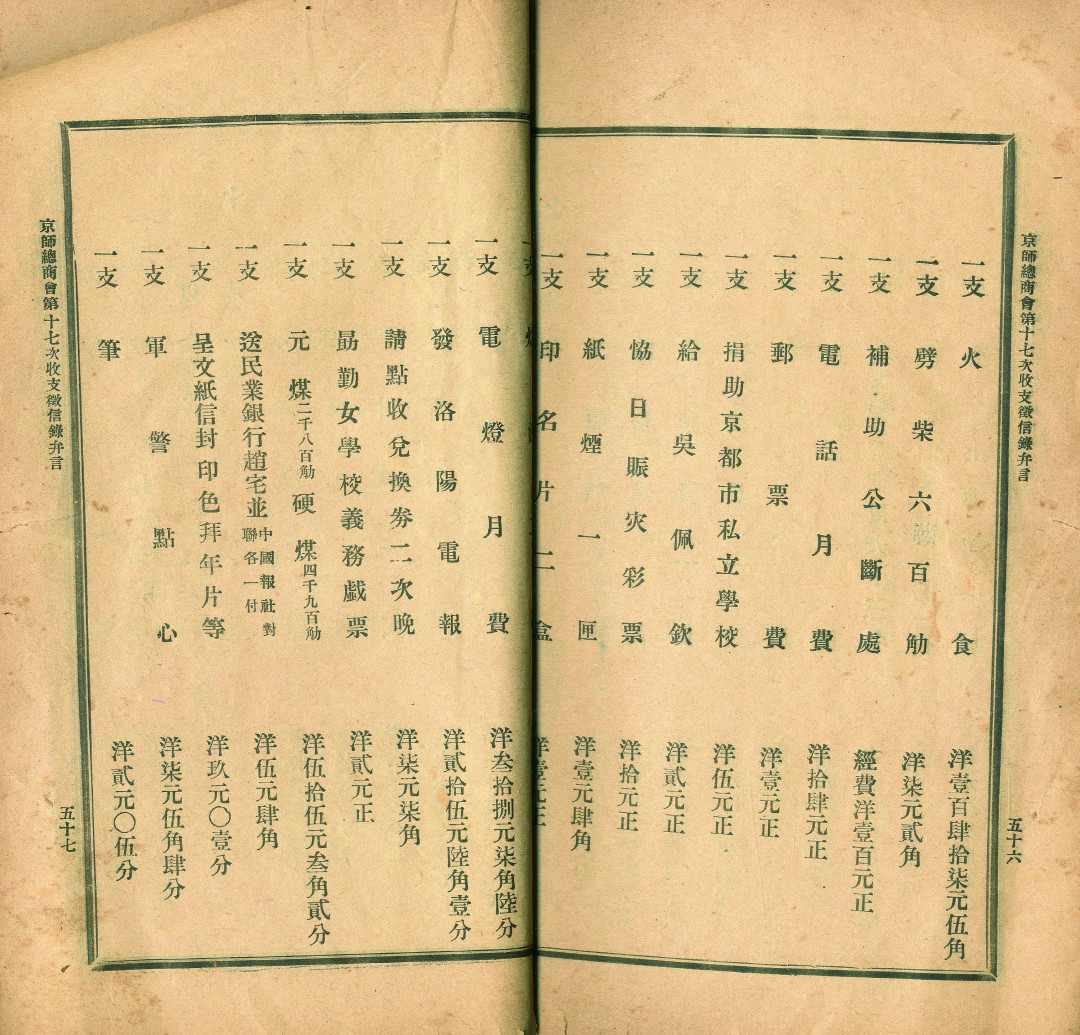 京師總商會第十七次收支徵信錄弁言
五十六
一支火食 洋壹百肆拾柒元伍角
一支劈柴六百觔 洋柒元貳角
一支補助公斷處 經費洋壹百元正
一支電話月費 洋拾肆元正
一支郵票費 洋壹元正
一支捐助京都市私立學校 洋伍元正
一支給吳佩欽 洋貳元正
一支恊日賑灾彩票 洋拾元正
一支紙煙一匣 洋壹元肆角
一支印名片二盒 洋壹元正
一支
一支電燈月費 洋叁拾捌元柒角陸分
一支發洛陽電報 洋貳拾伍元陸角壹分
一支請點收兌換劵二次晚 洋柒元柒角
一支勗勤女學校義務戯票 洋貳元正
一支元煤二千八百觔硬煤四千九百觔 洋伍拾伍元叁角貳分
一支送民業銀行趙宅並中國報社對聯各一付 洋伍元肆角
一支呈文紙信封印色拜年片等 洋玖元〇壹分
一支軍警點心 洋柒元伍角肆分
一支筆 洋貳元〇伍分
京師總商會第十七次收支徵信錄弁言
五十七